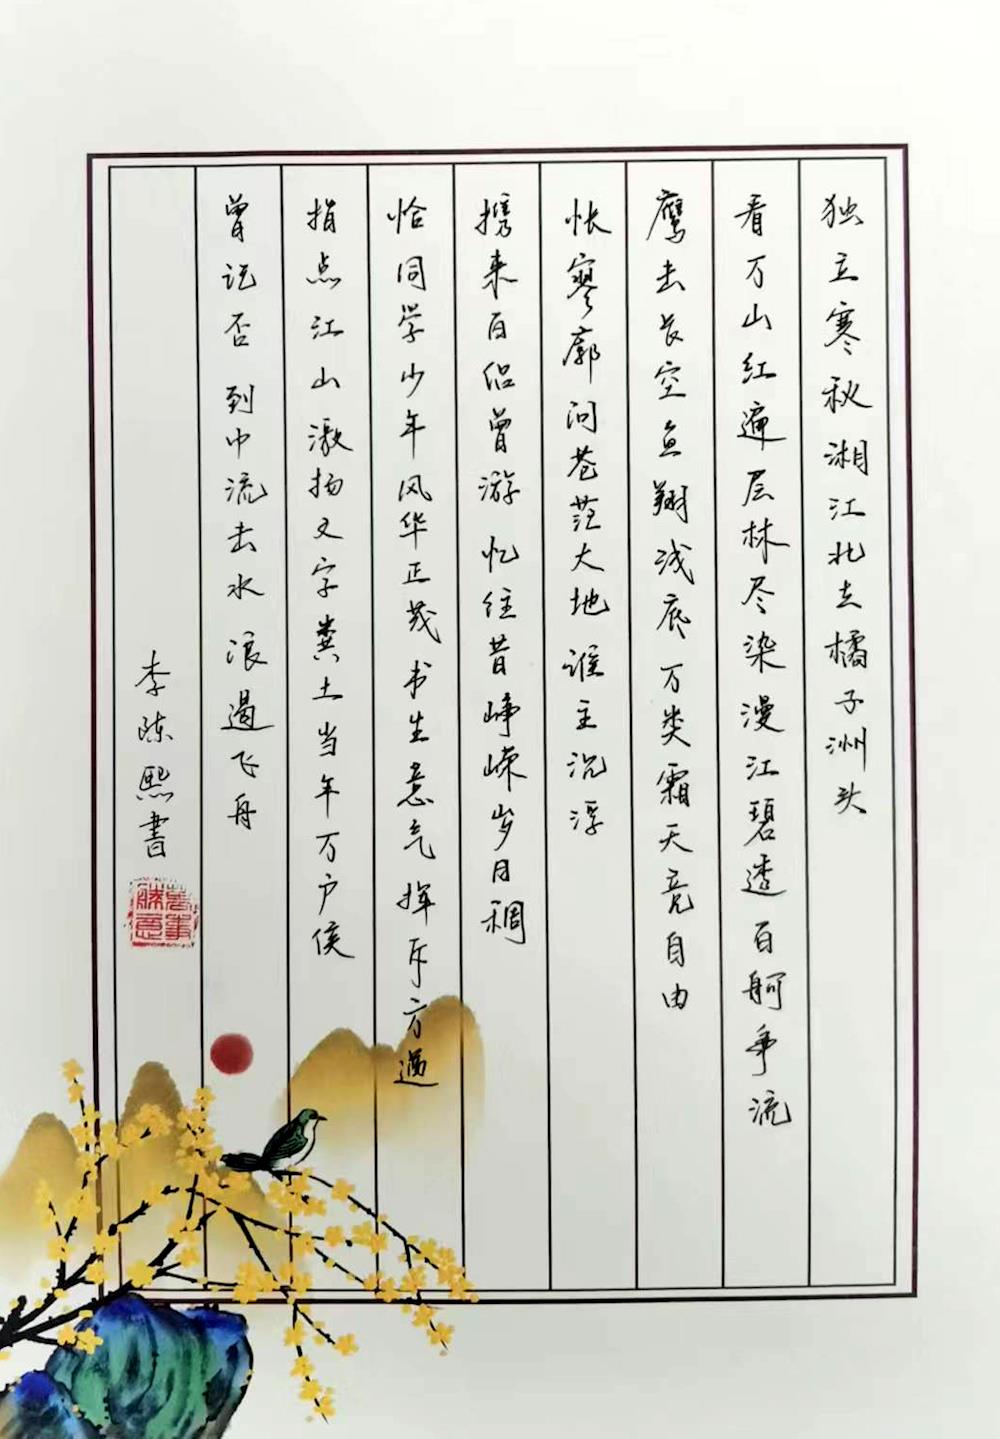 独立寒秋湘江北去橘子洲头
看万山红遍层林尽染漫江碧透百舸争流
鹰击长空鱼翔浅底万类霜天竞自由
怅寥廓问苍茫大地谁主沉浮
携来百侣曾游忆往昔峥嵘岁月稠
恰同学少年风华正茂书生意气挥斥方遒
指点江山激扬文字粪土当年万户侯
曾记否到中流击水浪遏飞舟
李陈熙書
萬事勝意